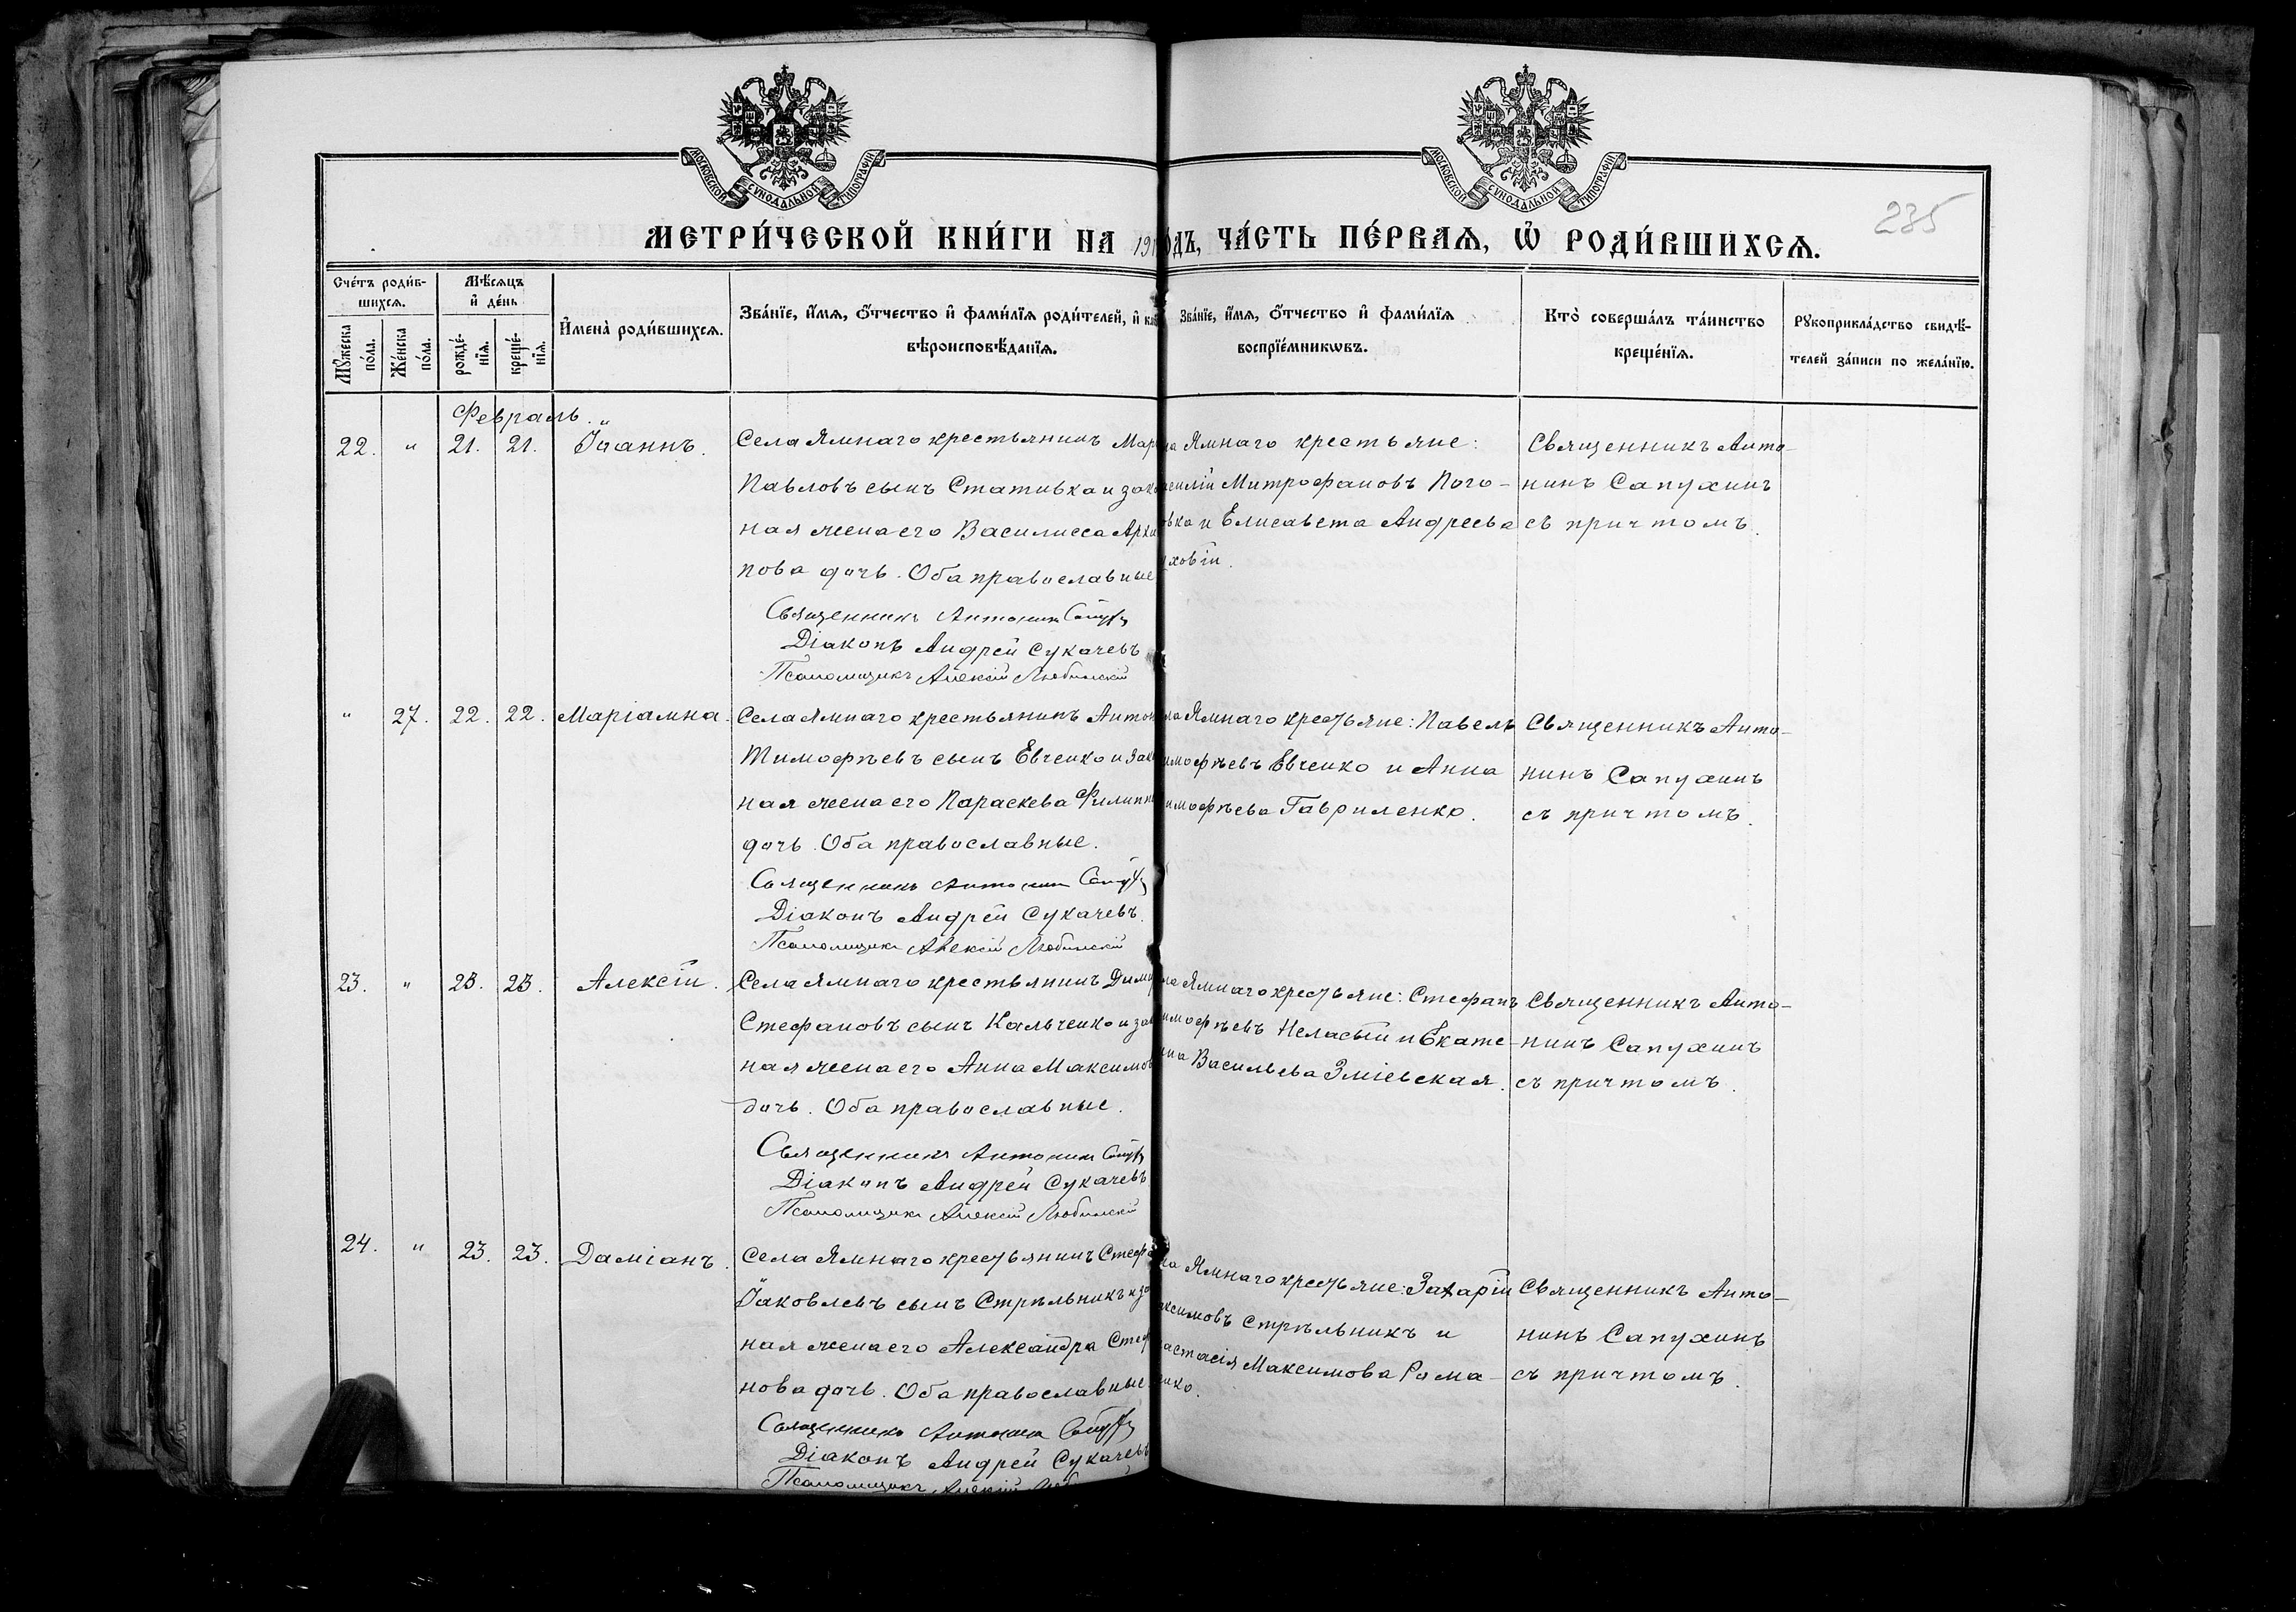 МОСКОВСКОЙ СѴНОДАЛЬНОЙ ТИПОГРАФІИ
МОСКОВСКОЙ СѴНОДАЛЬНОЙ ТИПОГРАФІИ
235
МЕТРИ́ЧЕСКОЙ КНИ́ГИ НА 191
ОДЪ, ЧА́СТЬ ПЕ́РВАѦ, Ѡ҆ РОДИ́ВШИХСѦ.
Сче́тъ роди́в-
шихсѧ.
Мꙋ́жеска по́ла.
Же́нска по́ла.
Мѣ́сѧцъ
и҆ де́нь
рожде́-
нїѧ.
креще́-
нїѧ.
И҆мена̀ роди́вшихсѧ.
Зва́нїе, и҆́мѧ, ѻ҆́тчество и҆ фами́лїѧ роди́телей, и҆
вѣроисповѣ́данїѧ.
Зва́нїе, и҆́мѧ, ѻ҆́тчество и҆ фами́лїѧ
воспрїе́мникѡвъ.
Кто̀ соверша́лъ та́инство
креще́нїѧ.
Рꙋкоприкла́дство свидѣ́-
телей за́писи по жела́нїю.
Февраль.
22. " 21. 21. Іоаннъ.
Села Ямнаго крестьянинъ Мар
Павловъ сынъ Стативка и зако
ная жена его Василисса Архи
пова дочь. Оба православные
Священникъ Антонинъ
Діаконъ Андрей Сукачевъ
Псаломщикъ Алексій Любинскій
ла Ямнаго крестьяне:
асилій Митрофановъ Пого-
вка и Елисавета Андреева
уховій.
Священникъ Анто-
нинъ Сапухинъ
съ причтомъ.
" 27. 22. 22. Маріамна.
Села Ямнаго крестьянинъ Антон
Тимофѣевъ сынъ Евченко и зак
ная жена его Параскева Филипп
дочь. Оба православные.
Священникъ Антонин
Діаконъ Андрей Сукачевъ.
Псаломщикъ Алексій Любинскій
ла Ямнаго крестьяне: Павелъ
имофѣевъ Евченко и Анна
имофѣева Гавриленко.
Священникъ Анто-
нинъ Сапухинъ
съ причтомъ.
23. " 23. 23. Алексій.
Села Ямнаго крестьянинъ Дими
Стефановъ сынъ Кальченко и зак
ная жена его Анна Максимов
дочь. Оба православные.
Священникъ Антонинъ
Діаконъ Андрей Сукачевъ
Псаломщикъ Алексій Любинскій
ла Ямнаго крестьяне: Стефанъ
имофѣевъ Неласый и Екате-
ина Васильева Зміевская.
Священникъ Анто-
нинъ Сапухинъ
съ причтомъ.
24. " 23. 23. Даміанъ.
Села Ямнаго крестьянинъ Стефа
Іаковлевъ сынъ Стрѣльникъ и за
ная жена его Александра Стеф
нова дочь. Оба православные
Священникъ Антонин
Діаконъ Андрей Сукачевъ
Псаломщикъ Алексій
ла Ямнаго крестьяне: Захарій
аксимовъ Стрѣльникъ и
астасія Максимова Рома-
енко.
Священникъ Анто-
нинъ Сапухинъ
съ причтомъ.